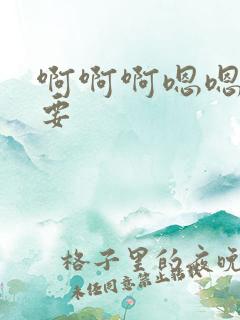 啊啊啊嗯嗯
要
格子里的夜晚
未经同意禁止转载